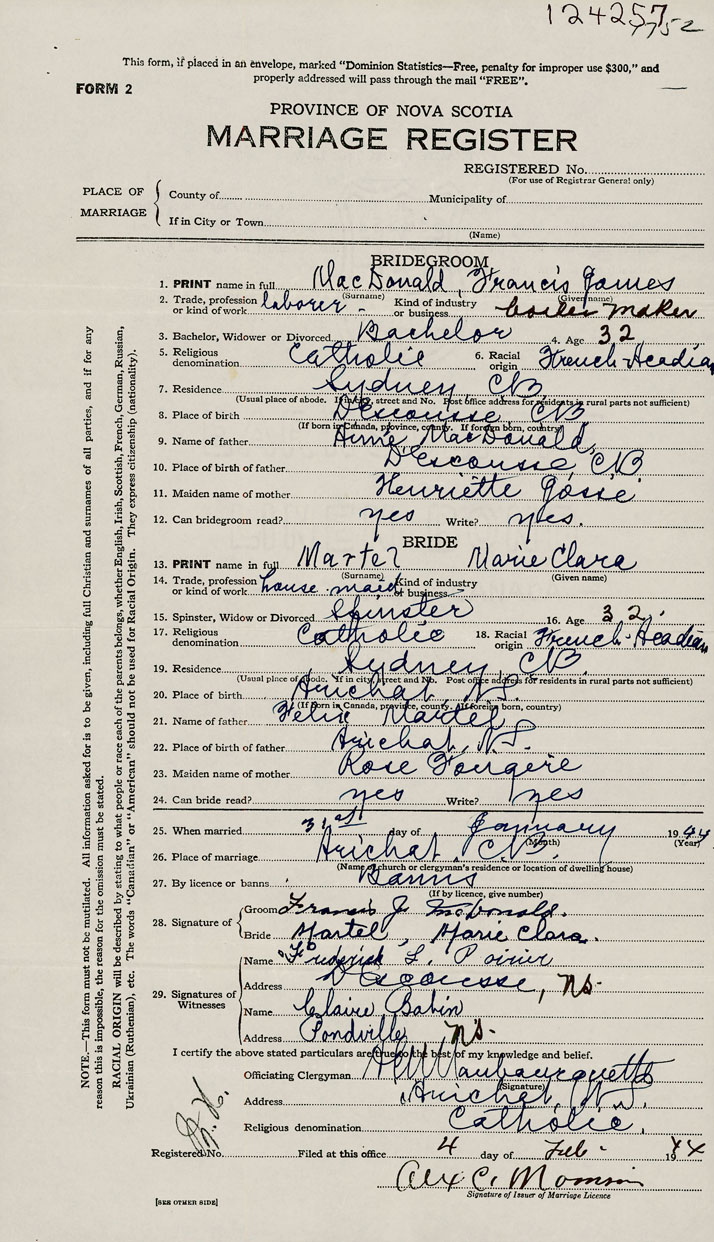 124257
7752
This form, if placed in an envelope, marked "Dominion Statistics—Free, penalty for improper use $300," and
properly addressed will pass through the mail "FREE".
FORM 2
PROVINCE OF NOVA SCOTIA
MARRIAGE REGISTER
REGISTERED No.
(For use of Registrar General only)
PLACE OF MARRIAGE
County of Municipality of
If in City or Town
(Name)
BRIDEGROOM
1. PRINT name in full MacDonald, Francis James
(Surname) (Given name)
2. Trade, profession or kind of work laborer - Kind of industry or business boiler maker
3. Bachelor, Widower or Divorced Bachelor 4. Age 32
5. Religious denomination Catholic 6. Racial origin French-Acadian
7. Residence Sydney CB
(Usual place of abode. If in city, street and No. Post office address for residents in rural parts not sufficient)
8. Place of birth Descousse CB
(If born in Canada, province, county. If foreign born, country)
9. Name of father MacDonald
10. Place of birth of father D'Escousse, CB
11. Maiden name of mother Henriette Gosse
12. Can bridegroom read? yes Write? yes.
BRIDE
13. PRINT name in full Martel Marie Clara
(Surname) (Given name)
14. Trade, profession or kind of work house maid Kind of industry or business
15. Spinster, Widow or Divorced Spinster 16. Age 32
17. Religious denomination Catholic 18. Racial origin French-Acadian
19. Residence Sydney CB
(Usual place of abode. If in city, street and No. Post office address for residents in rural parts not sufficient)
20. Place of birth Arichat, N.S.
(If born in Canada, province, county. If foreign born, country)
21. Name of father Felix Martel
22. Place of birth of father Arichat, N.S.
23. Maiden name of mother Rose Fougere
24. Can bride read? yes Write? yes
25. When married 31st day of January 1944
(Month) (Year)
26. Place of marriage Arichat, CB
(Name of church or clergyman's residence or location of dwelling house)
27. By licence or banns Banns
(If by licence, give number)
28. Signature of
Groom Francis J McDonald.
Bride Martel, Marie Clara.
29. Signatures of Witnesses
Name Frederick L. Poirier
Address Descousse, NS-
Name Claire Babin
Address Pondville NS-
I certify the above stated particulars are true to the best of my knowledge and belief.
Officiating Clergyman
(Signature)
Address Arichat, N.S.
Religious denomination Catholic
Registered No. Filed at this office 4 day of Feb- 1944
Alex C.
Signature of Issuer of Marriage Licence
[SEE OTHER SIDE]
NOTE.—This form must not be mutilated. All information asked for is to be given, including full Christian and surnames of all parties, and if for any
reason this is impossible, the reason for the omission must be stated.
RACIAL ORIGIN will be described by stating to what people or race each of the parents belongs, whether English, Irish, Scottish, French, German, Russian,
Ukrainian (Ruthenian), etc. The words "Canadian" or "American" should not be used for Racial Origin. They express citizenship (nationality).